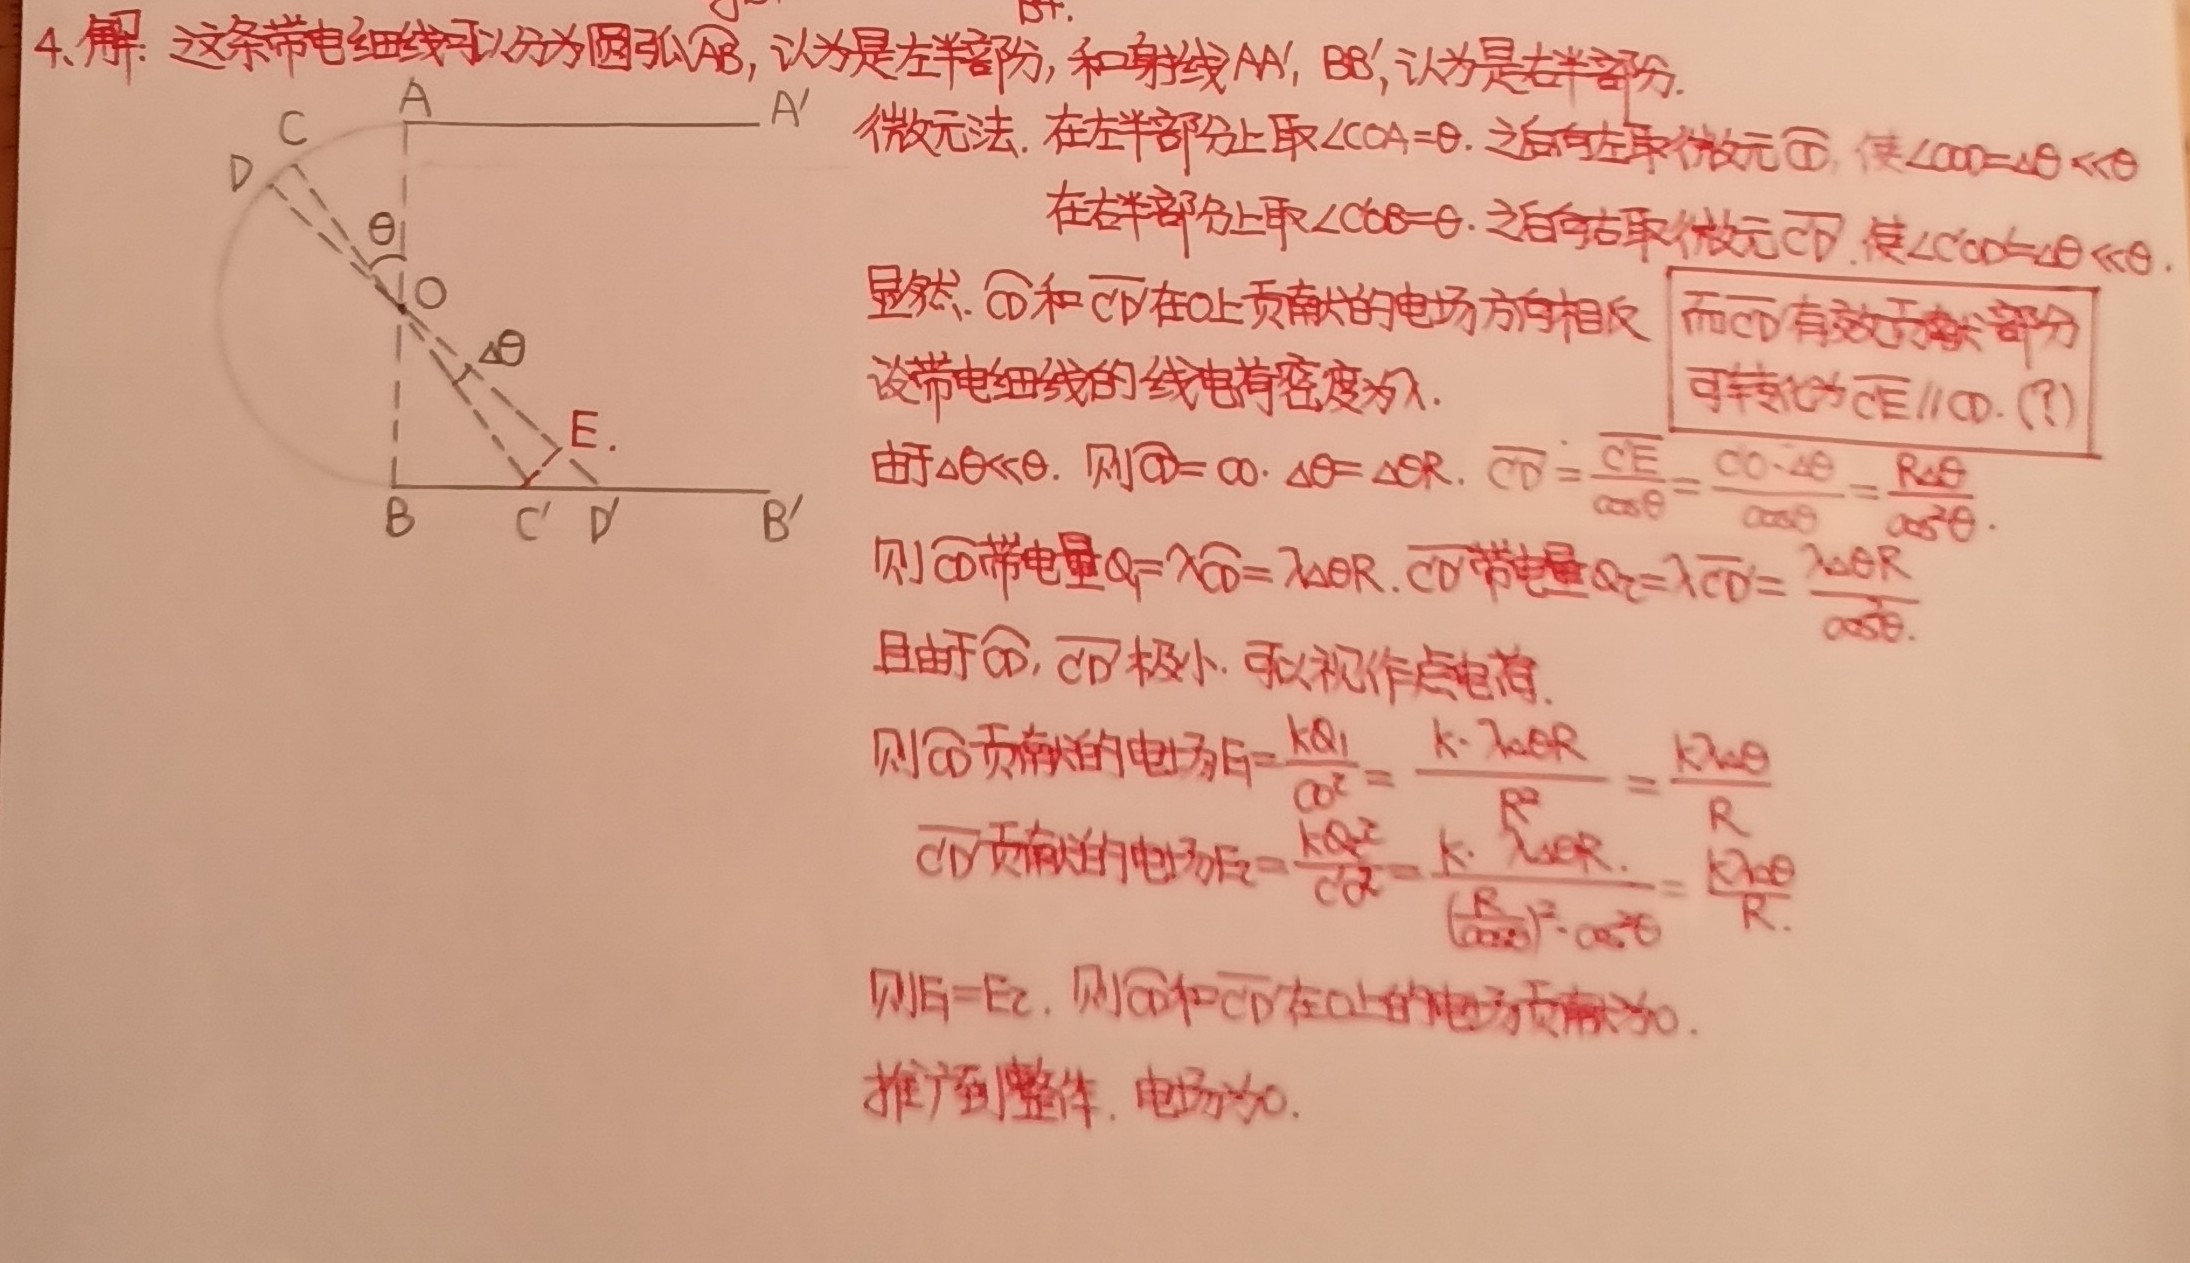 4、解: 这条带电细线可以分为圆弧AB, 认为是左半部分, 和射线AA′, BB′, 认为是右半部分.
A
A′
C
D
θ
O
Δθ
E.
B
C′
D′
B′
微元法. 在左半部分上取∠COA=θ. 之后向左取微元CD, 使∠COD=Δθ<<θ
在右半部分上取∠C′OB=θ. 之后向右取微元C′D′. 使∠C′OD′=Δθ<<θ.
显然. CD和C′D′在O上贡献的电场方向相反
而C′D′有效于贡献部分
可转化为C′E//CD. (?)
设带电细线的线电荷密度为λ.
由于Δθ<<θ. 则CD=CO·Δθ=ΔθR. C′D′=C′E/cosθ=C′O·Δθ/cosθ=RΔθ/cos²θ.
则CD带电量Q₁=λCD=λΔθR. C′D′带电量Q₂=λC′D′=λΔθR/cos²θ.
且由于CD, C′D′极小. 可以视作点电荷.
则CD贡献的电场E₁=kQ₁/CO²=k·λΔθR/R²=kλΔθ/R
C′D′贡献的电场E₂=kQ₂²/C′O²=k·λΔθR./(R/cosθ)²·cos²θ=kλΔθ/R.
则E₁=E₂. 则CD和C′D′在O上的电场贡献为0.
推广到整体. 电场为0.